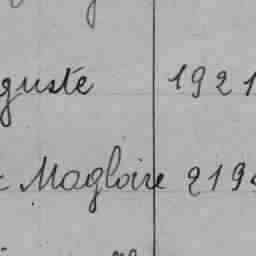 guste 1921
Magloire 219